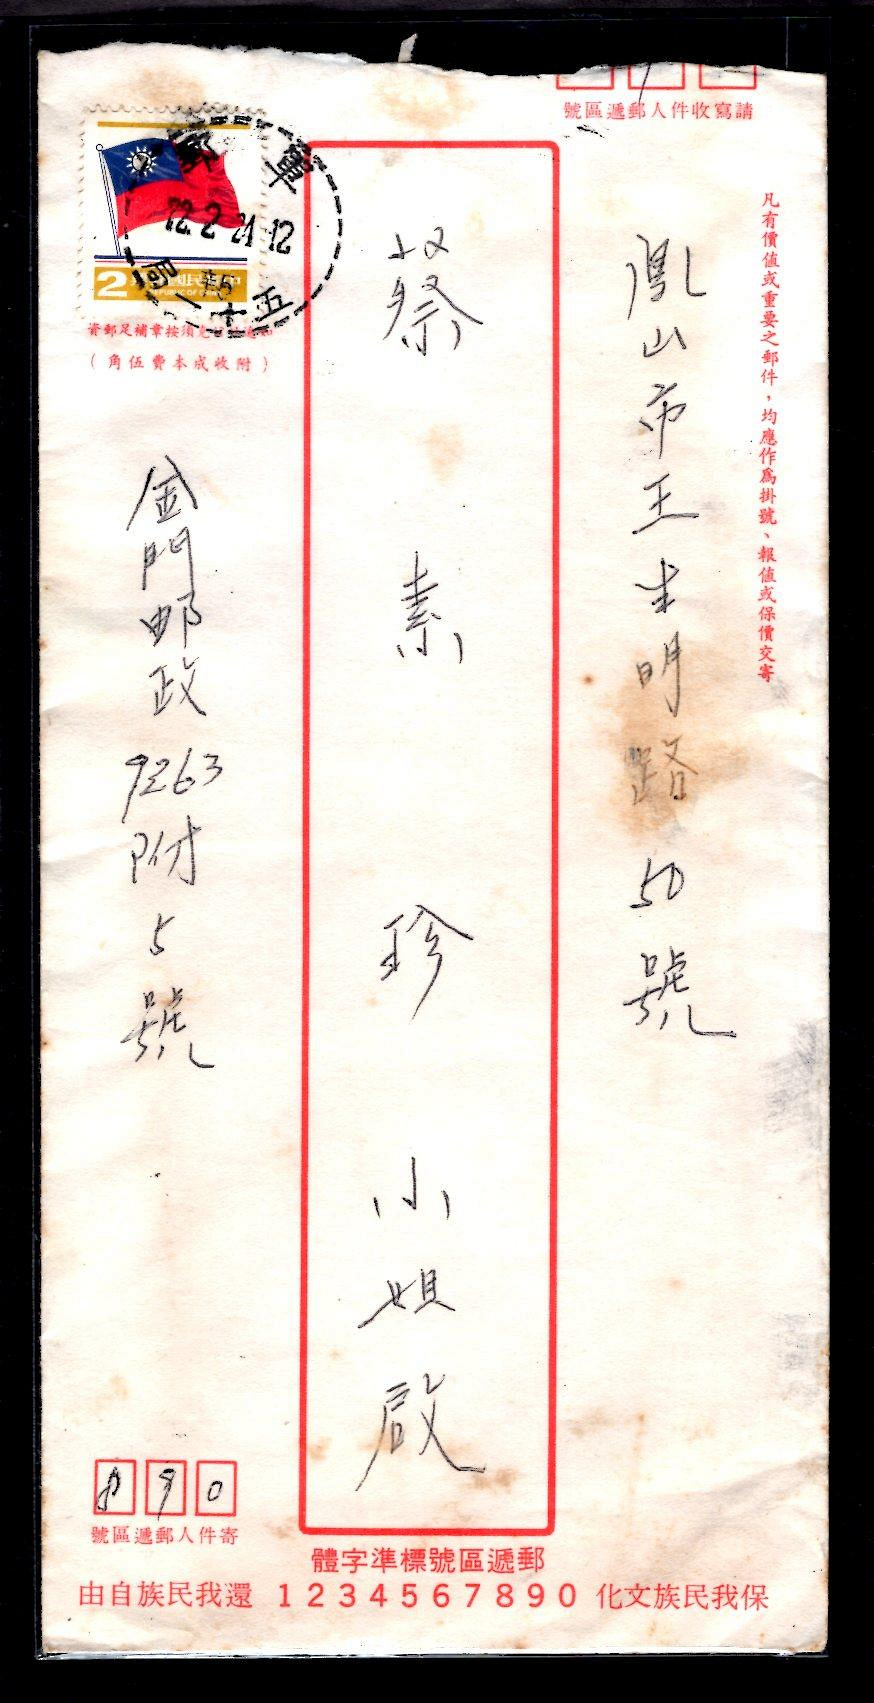 請寫收件人郵遞區號
凡有價值或重要之郵件，均應作為掛號、報值或保價交寄
鳳山市王生明路50號
蔡素珍小姐啟
軍郵
72.2.21.12
2
REPUBLIC OF
資郵足補章按須
（附收成本費伍角）
金門邮政9263附5號
890
寄件人郵遞區號
郵遞區號標準字體
保我民族文化 1234567890 還我民族自由